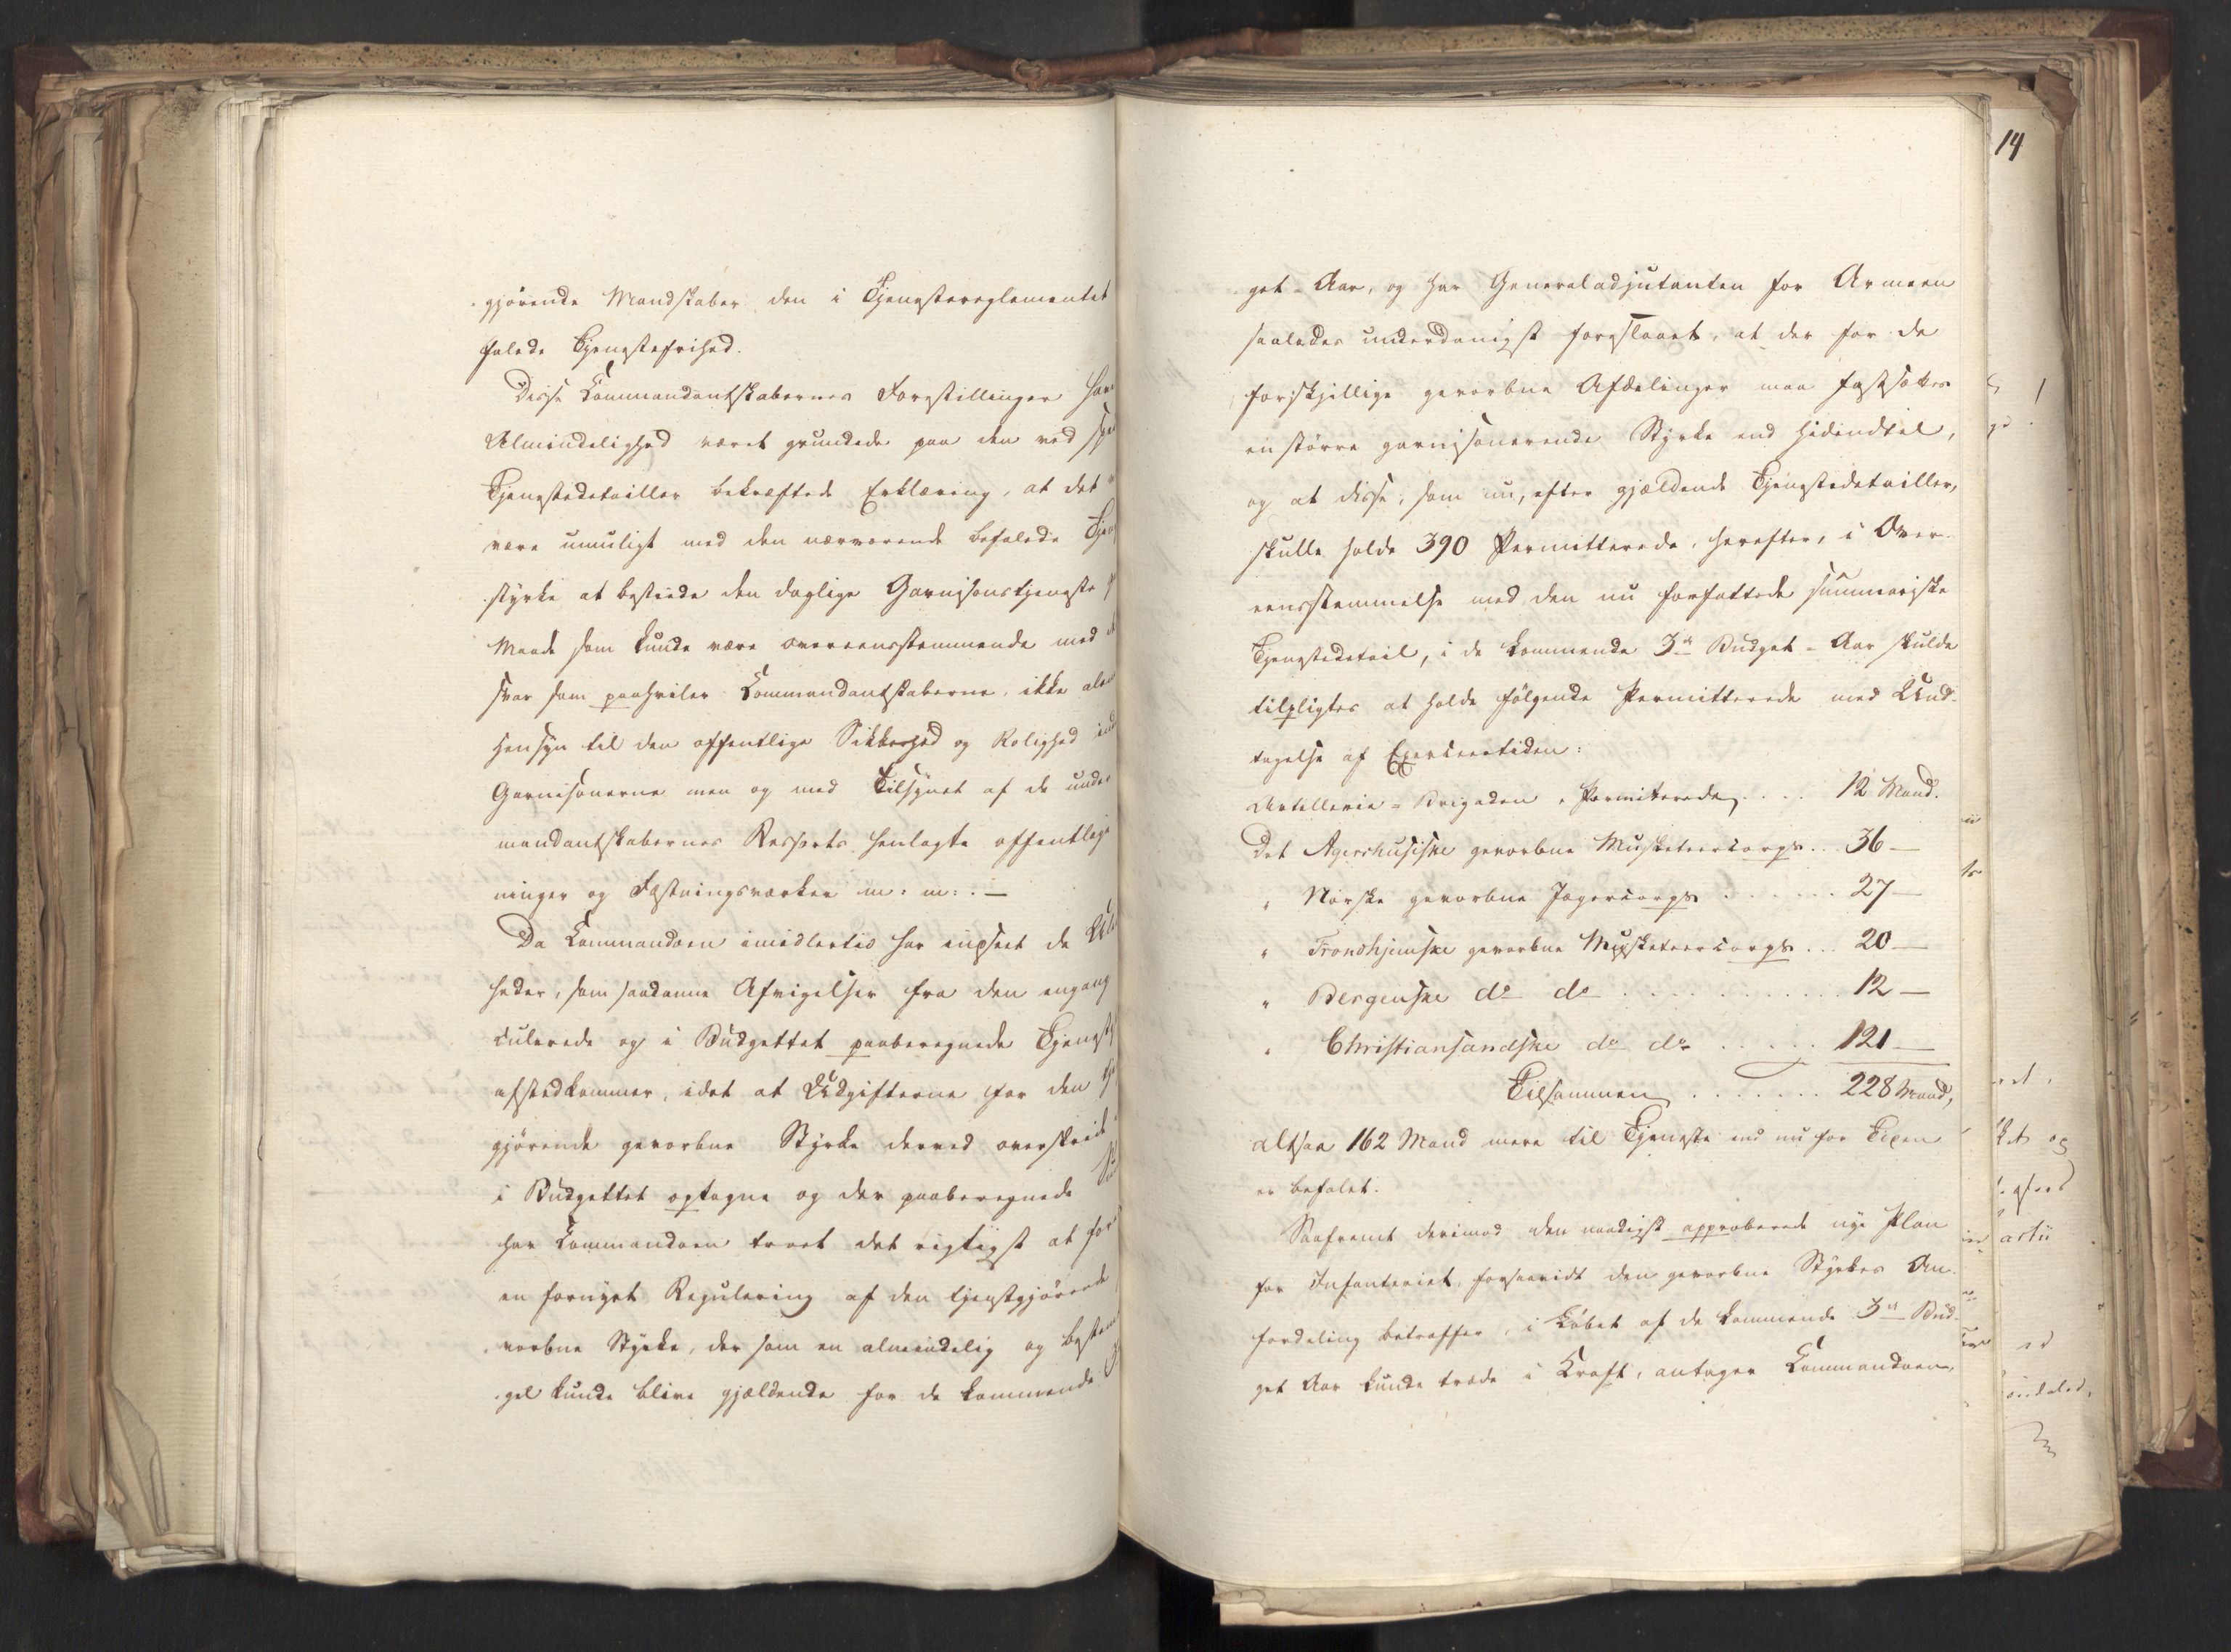 gjørende Mandskaber den i Tjenestereglementet
falede Tjenestefrihed.
Disse Commandantskabernes Forestillinger have
Almindelighed været grundede paa den ved
Tjenestedetailler bekræftede Erklæring, at det
være umuligt med den nærværende befalede
styrke at bestride den daglige Garnisonstjeneste
Maade som kunde være overeensstemmende med
svar som paahviler Commandantskaberne, ikke
Hensyn til den offentlige Sikkerhed og Rolighed
Garnisonerne men og med Tilsynet af de under
mandantskabernes Ressorts henlagte offentlige
ninger og Fæstningsværker m: m: . —
Da Commandoen imidlertid har indseet de
heder, som saadanne Afvigelser fra den engang
culerede og i Budgettet paaberegnede
afstedkommer, idet at Udgifterne for den
gjørende gevorbne Styrke derved overskride
i Budgettet optagne og der paaberegnede
har Commandoen troet det rigtigst at
en fornyet Regulering af den tjenstgjørende
vorbne Styrke, der som en almindelig og
gel kunde blive gjældende for de kommende
14
get-Aar, og har Generaladjutanten for Armeen
saaledes underdanigst foreslaaet, at der for de
forskjellige gevorbne Afdelinger maa fastsættes
en større garnisonerende Styrke end hidindtil,
og at disse, som nu, efter gjældende Tjenestedetailler,
skulle holde 390 Permitterede, herefter, i Over-
eensstemmelse med den nu forfattede summariske
Tjenestedetail, i de kommende 3de Budget-Aar skulde
tilpligtes at holde følgende Permitterede med Und-
tagelse af Exerceertiden:
Artillerie-Brigaden, Permiterede .... 12 Mand.
Det Agershusiske gevorbne Musketeercorps... 36 —
" Norske gevorbne Jægercorps ...... 27 —
" Trondhjemske gevorbne Musketeercorps... 20 —
" Bergenske do do ........... 12 —
" Christiansandske do do ..... 121 —
Tilsammen ....... 228 Mand,
altsaa 162 Mand mere til Tjeneste end nu for Tiden
er befalet.
Saafremt derimod den naadigst approberede nye Plan
for Infanteriet, forsaavidt den gevorbne Styrkes An-
fordeling betræffer, i Løbet af de kommende 3de Bud-
get Aar kunde træde i Kraft, antager Commandoen,